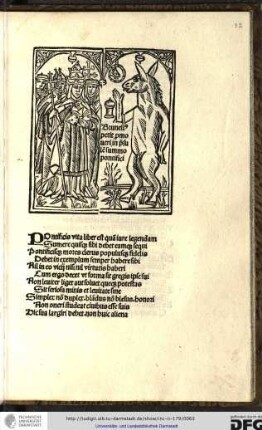 Brunell⁹
petit pmo
ueri in
summo
pontifici
Pontificis vita liber est quā iure legendam
Sumere quisq̄ sibi debet eamq̄ sequi
Pontificisq̄ mores clerus populusq̄ fidelis
Debet in exemplum semper habere sibi
Nil in eo vicij nisi virtutis haberi
Cum ergo decet vt forma sit gregis ipse sui
Non leuiter liget aut soluet queq̄ potestas
Sit seriosa minis et leuitate sine
Simplex nō duplex blādus nō honori
Non oneri studeat ciuibus esse suis
Dicta largiri debet non huic aliena
http://tudigit.ulb.tu-darmstadt.de/show/inc-iii-179/0063
Universitäts- und Landesbibliothek Darmstadt
DFG